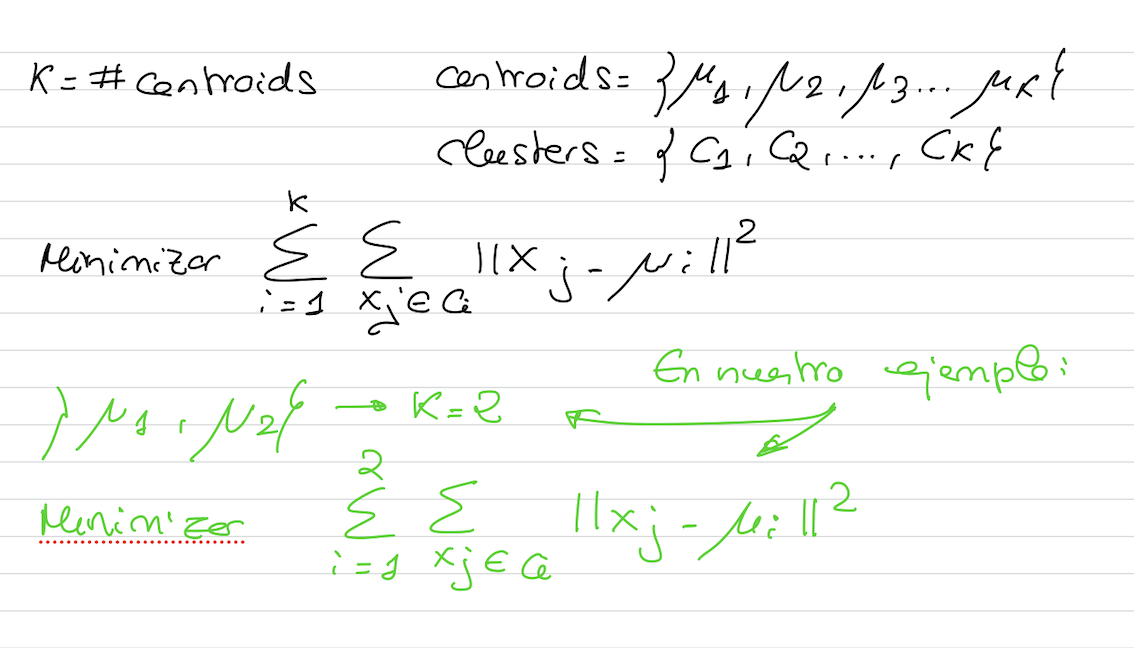 K = # centroids
centroids = {μ1, μ2, μ3... μK}
clusters = {C1, C2, ..., CK}
Minimizar K Σ i=1 Σ xj ∈ Ci ||xj - μi||²
En nuestro ejemplo:
{μ1, μ2} → K=2
Minimizar 2 Σ i=1 Σ xj ∈ Ci ||xj - μi||²